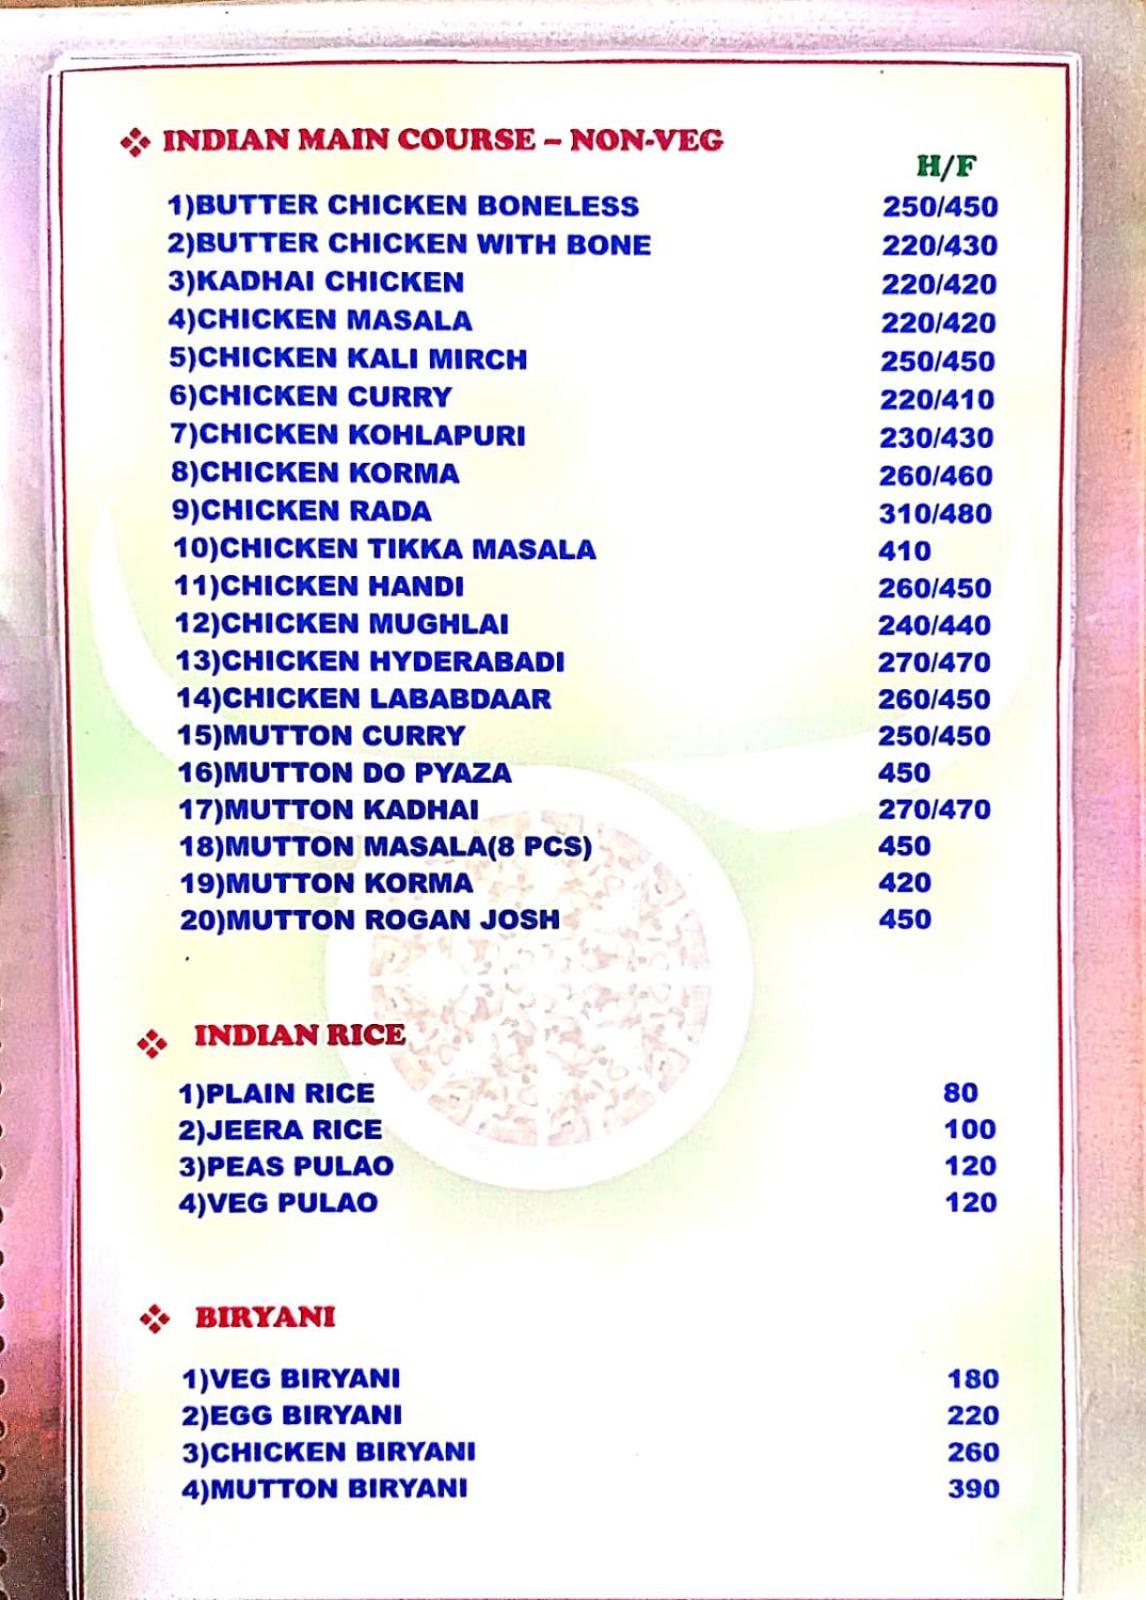 INDIAN MAIN COURSE – NON-VEG
H/F
1)BUTTER CHICKEN BONELESS 250/450
2)BUTTER CHICKEN WITH BONE 220/430
3)KADHAI CHICKEN 220/420
4)CHICKEN MASALA 220/420
5)CHICKEN KALI MIRCH 250/450
6)CHICKEN CURRY 220/410
7)CHICKEN KOHLAPURI 230/430
8)CHICKEN KORMA 260/460
9)CHICKEN RADA 310/480
10)CHICKEN TIKKA MASALA 410
11)CHICKEN HANDI 260/450
12)CHICKEN MUGHLAI 240/440
13)CHICKEN HYDERABADI 270/470
14)CHICKEN LABABDAAR 260/450
15)MUTTON CURRY 250/450
16)MUTTON DO PYAZA 450
17)MUTTON KADHAI 270/470
18)MUTTON MASALA(8 PCS) 450
19)MUTTON KORMA 420
20)MUTTON ROGAN JOSH 450
INDIAN RICE
1)PLAIN RICE 80
2)JEERA RICE 100
3)PEAS PULAO 120
4)VEG PULAO 120
BIRYANI
1)VEG BIRYANI 180
2)EGG BIRYANI 220
3)CHICKEN BIRYANI 260
4)MUTTON BIRYANI 390